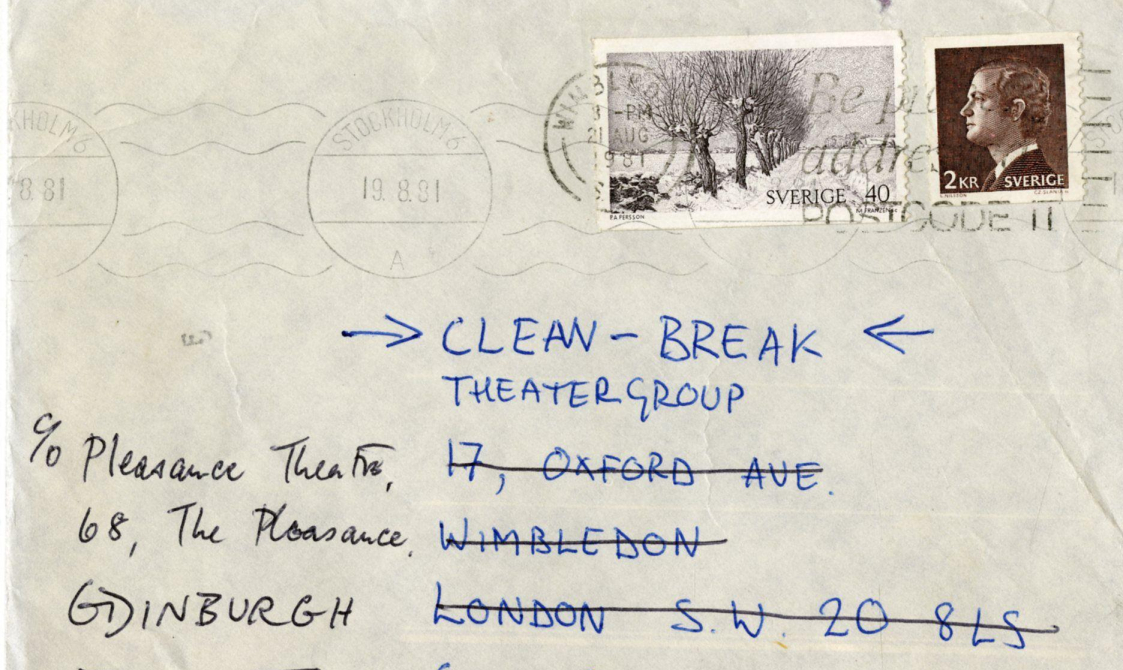 KHOLM 6
8.81
STOCKHOLM 6
19.8.81
A
WIMBLEDON
-PM
21 AUG
1981
Be
addre
POSTCODE IT
SVERIGE 40
P.A PERSSON
M FRANZÉN sc
2 KR SVERIGE
CZ SLANIA sc
→ CLEAN – BREAK ←
THEATERGROUP
c/o Pleasance Theatre,
17, OXFORD AVE.
68, The Pleasance,
WIMBLEDON
EDINBURGH
LONDON S.W. 20 8LS